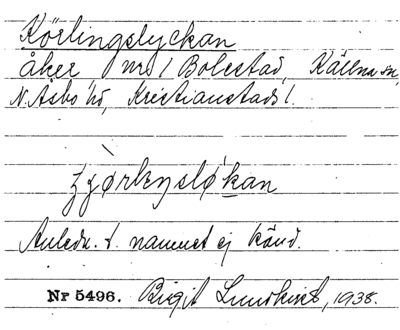 Körlingslyckan
åker, nr 1 Bolestad, Källna sn,
N. Åsbo hd, Kristianstads l.
Anledn. t. namnet ej känd.
Nr 5496. Birgit Lundkvist, 1938.